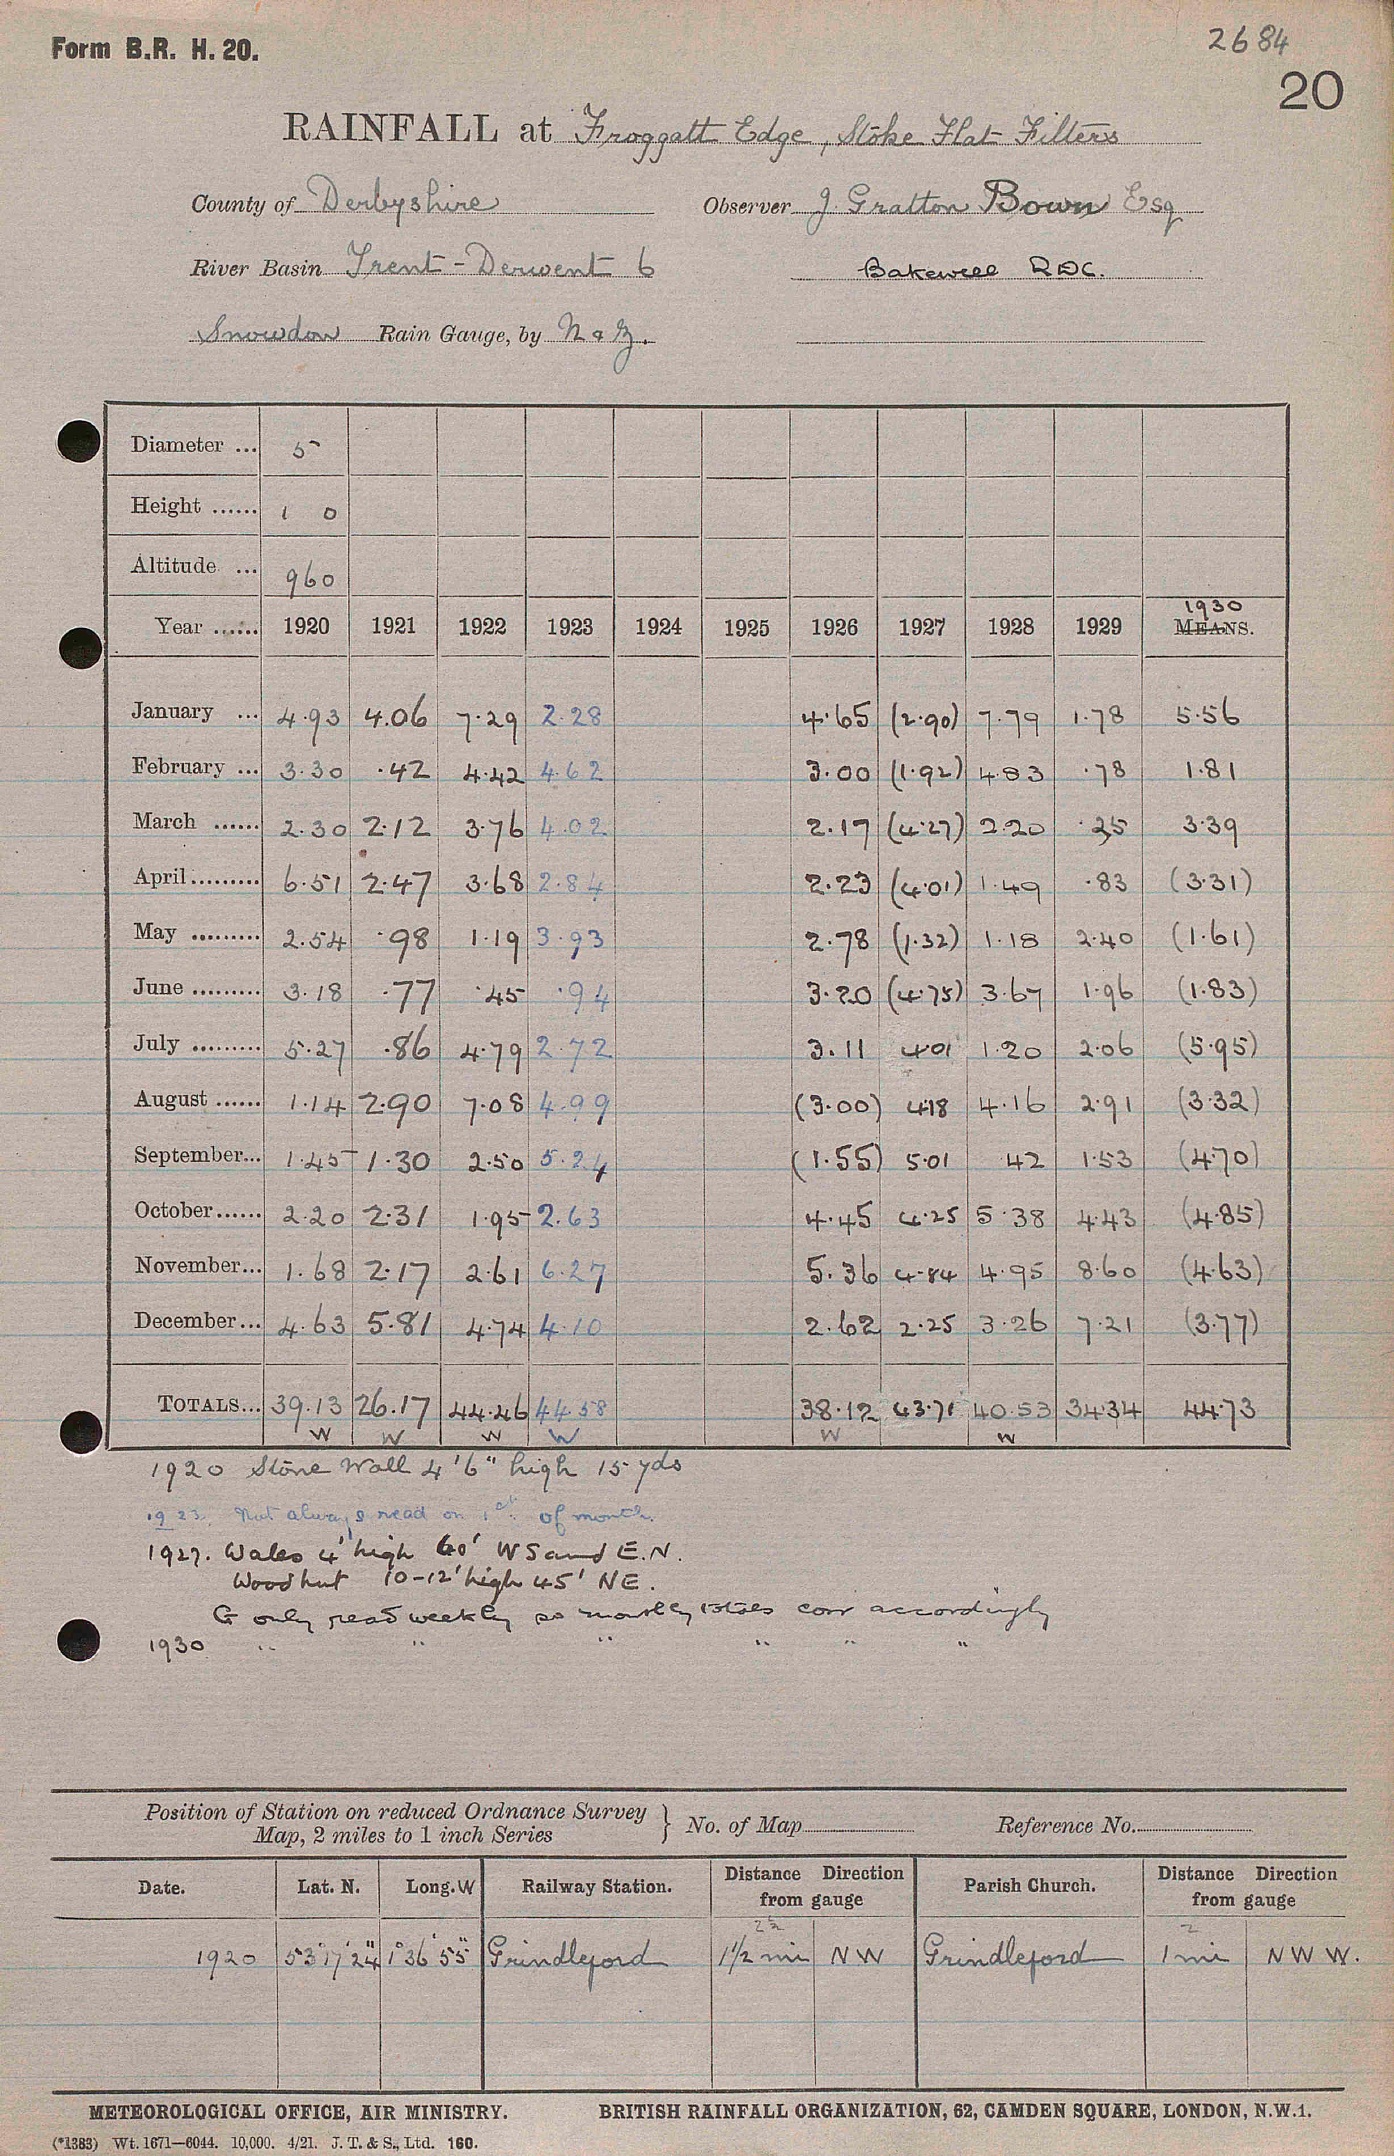 Form B.R. H. 20.
2684
20
RAINFALL at Froggatt Edge, Stoke Flat Filters
County of Derbyshire Observer J. Gratton Bown Esq
River Basin Trent - Derwent 6 Bakewell RDC.
Snowdon Rain Gauge, by N & Z.
Diameter ... 5
Height ...... 1 0
Altitude ... 960
Year ...... 1920 1921 1922 1923 1924 1925 1926 1927 1928 1929 1930 MEANS.
January ... 4.93 4.06 7.29 2.28 4.65 (2.90) 7.79 1.78 5.56
February ... 3.30 .42 4.42 4.62 3.00 (1.92) 4.83 .78 1.81
March ...... 2.30 2.12 3.76 4.02 2.17 (4.27) 2.20 .35 3.39
April......... 6.51 2.47 3.68 2.84 2.23 (4.01) 1.49 .83 (3.31)
May ......... 2.54 .98 1.19 3.93 2.78 (1.32) 1.18 2.40 (1.61)
June ......... 3.18 .77 .45 .94 3.20 (4.75) 3.67 1.96 (1.83)
July ......... 5.27 .86 4.79 2.72 3.11 4.01 1.20 2.06 (5.95)
August ...... 1.14 2.90 7.08 4.99 (3.00) 4.18 4.16 2.91 (3.32)
September... 1.45 1.30 2.50 5.24 (1.55) 5.01 .42 1.53 (4.70)
October...... 2.20 2.31 1.95 2.63 4.45 4.25 5.38 4.43 (4.85)
November... 1.68 2.17 2.61 6.27 5.36 4.84 4.95 8.60 (4.63)
December... 4.63 5.81 4.74 4.10 2.62 2.25 3.26 7.21 (3.77)
TOTALS... 39.13 26.17 44.46 44.58 38.12 43.71 40.53 34.34 44.73
W W W W W W
1920 Stone Wall 4'6" high 15 yds
1923. Not always read on 1st. of month.
1927. Walls 4' high 60' WS and E.N.
Wood hut 10-12' high 45' NE.
G only read weekly so monthly totals corr accordingly
1930 " " " " " "
Position of Station on reduced Ordnance Survey Map, 2 miles to 1 inch Series } No. of Map Reference No.
Date. Lat. N. Long. W Railway Station. Distance Direction from gauge Parish Church. Distance Direction from gauge
1920 53°17'24" 1°36'55" Grindleford 1½ mi NW Grindleford 1 mi NWW.
METEOROLOGICAL OFFICE, AIR MINISTRY. BRITISH RAINFALL ORGANIZATION, 62, CAMDEN SQUARE, LONDON, N.W.1.
(*1383) Wt. 1671—6044. 10,000. 4/21. J. T. & S., Ltd. 160.